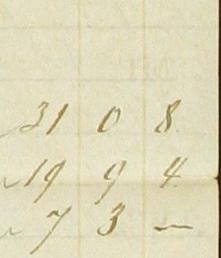 31 0 8
19 9 4
7 3 —